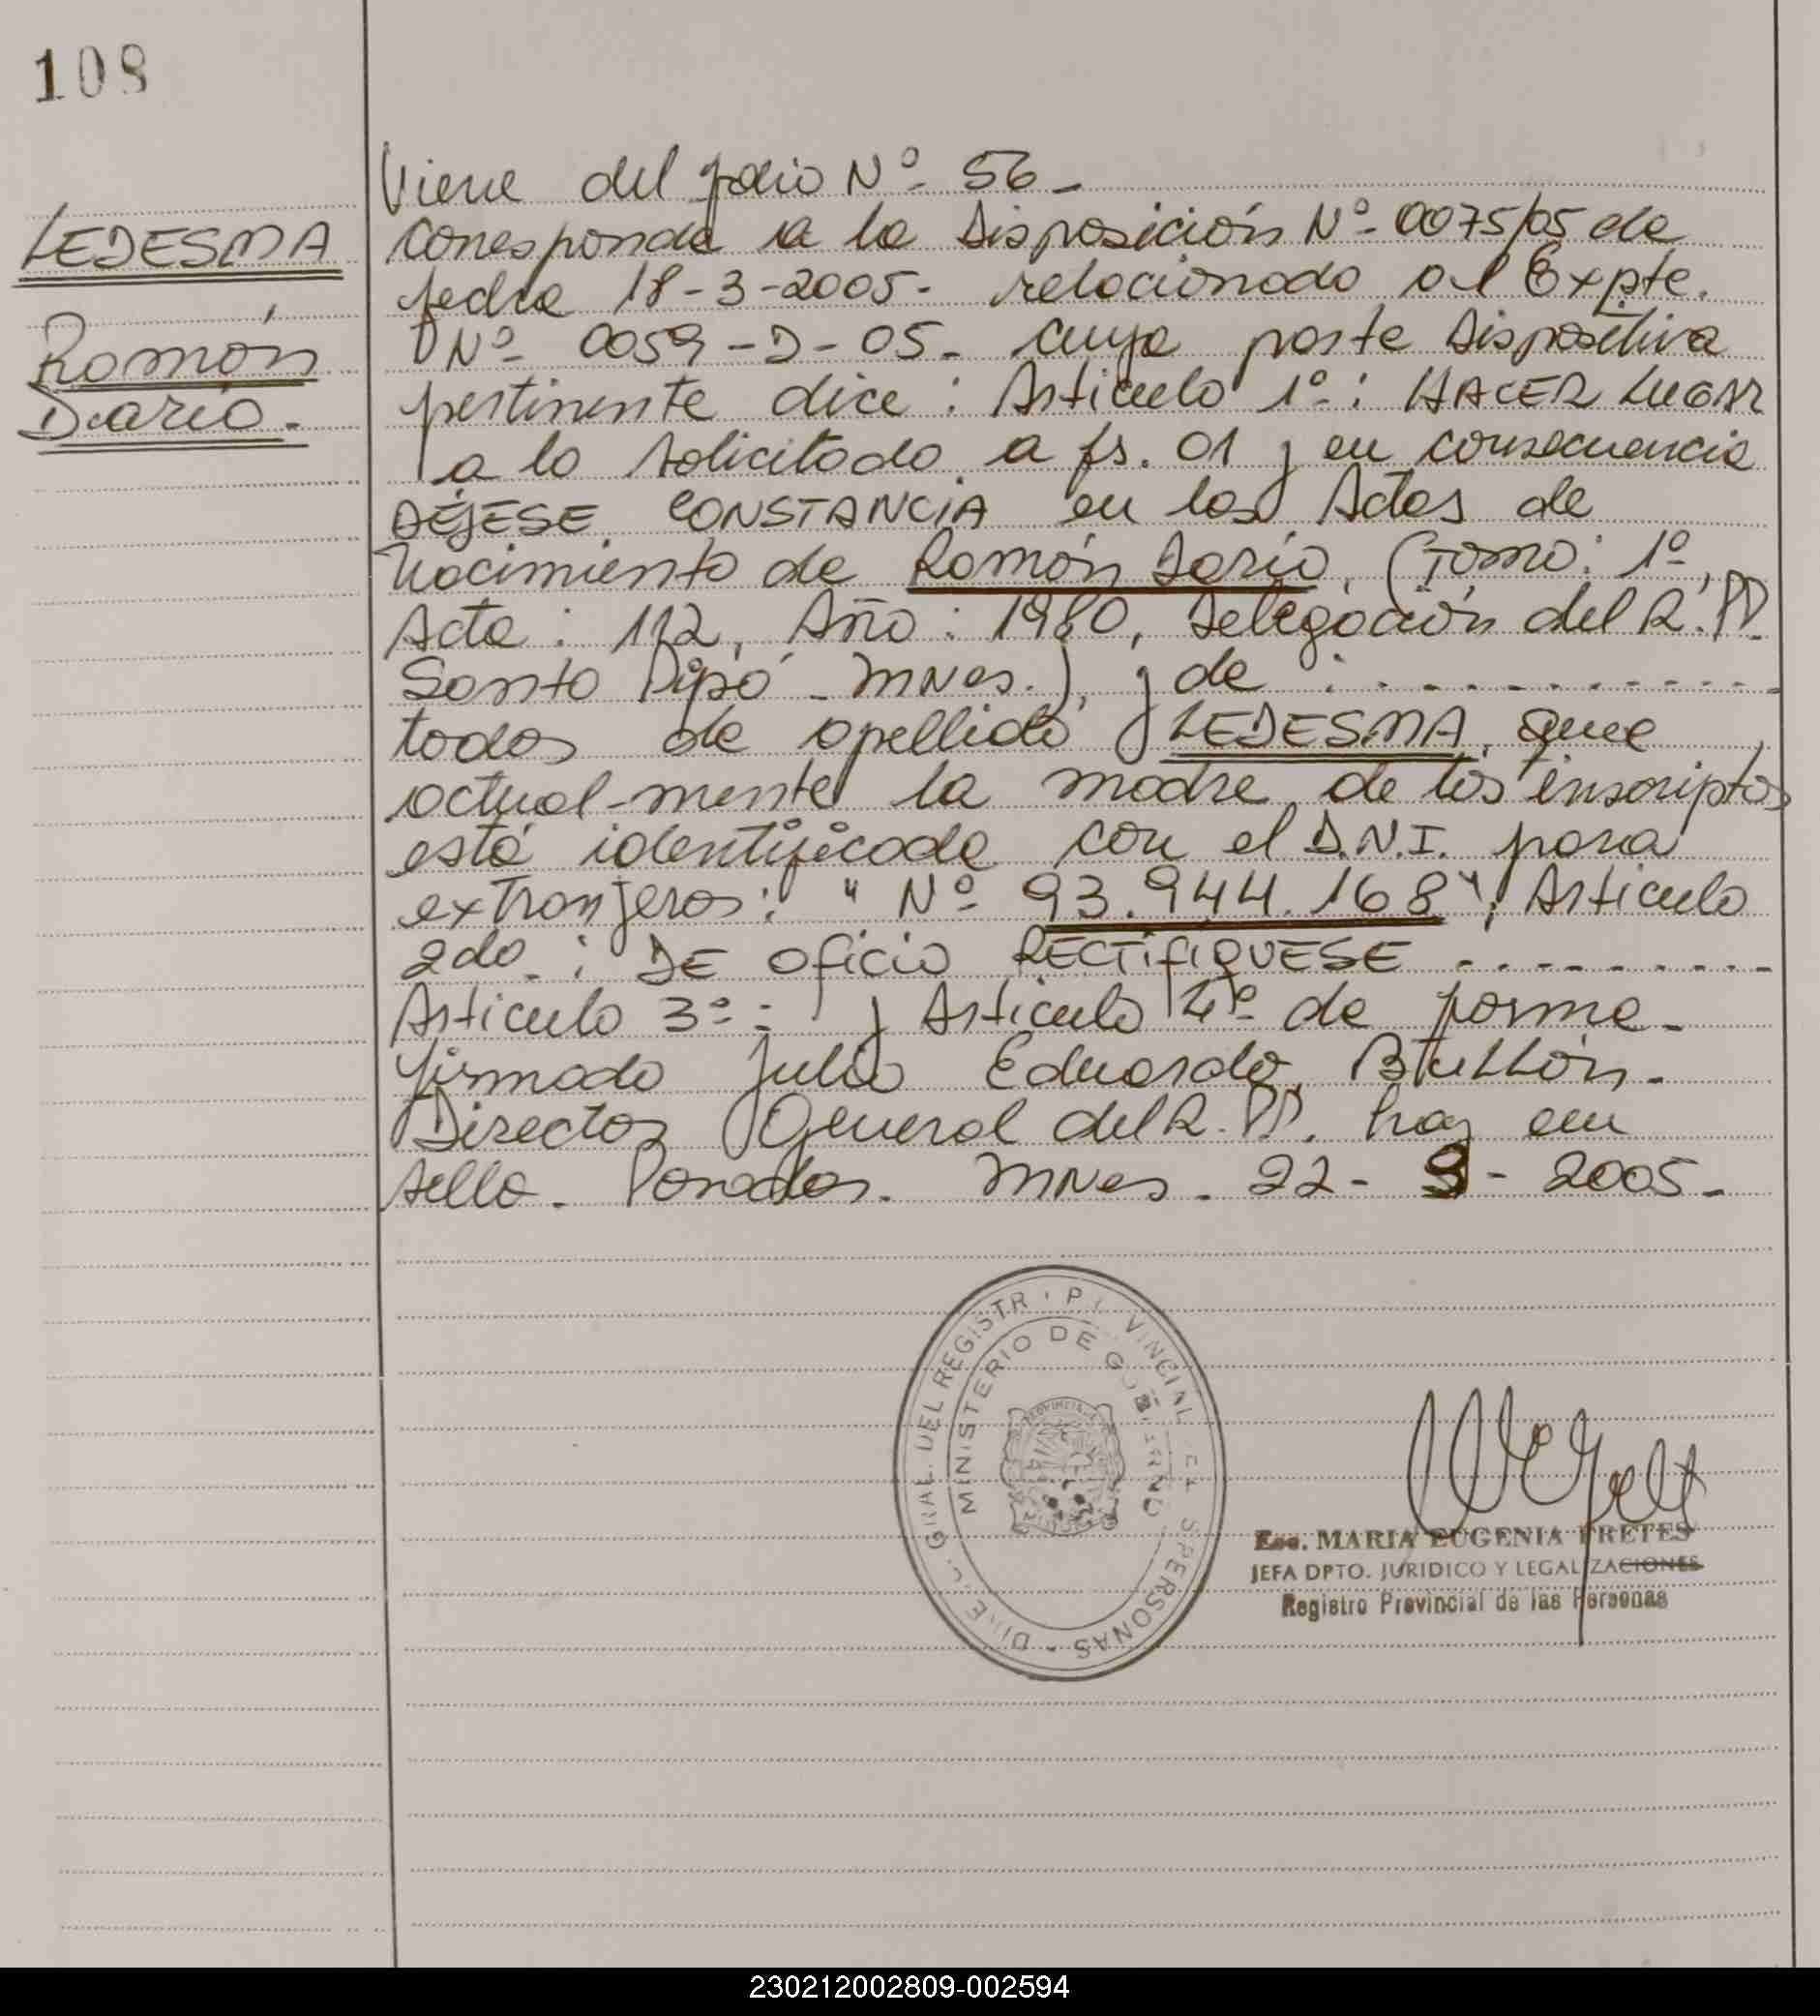 108
LEDESMA
Ramón
Darío.
Viene del folio Nº 56-
Corresponde a la Disposición Nº 0075/05 de
fecha 18-3-2005- relacionado al Expte.
Nº 0059-D-05- cuya parte dispositiva
pertinente dice: Articulo 1º: HACER LUGAR
a lo solicitado a fs. 01 y en consecuencia
DÉJESE CONSTANCIA en las Actas de
Nacimiento de Ramón Darío, (Tomo: 1º,
Acta: 112, Año: 1980, Delegación del R.PP.
Santo Pipó - MNes.), y de : - - - - - - - - -
todos de apellido LEDESMA, que
actual-mente la madre de los inscriptos
está identificada con el D.N.I. para
extranjeros: "Nº 93.944.168"; Articulo
2do.: DE OFICIO RECTIFIQUESE - - - - - - - - -
Articulo 3º: y Articulo 4º de forma-
firmado Julio Eduardo
Director General del R.PP. hay un
sello- Posadas- MNes- 22-3-2005-
DIREC. GRAL. DEL REGISTRO PROVINCIAL DE LAS PERSONAS
MINISTERIO DE GOBIERNO
Esc. MARIA EUGENIA FRETES
JEFA DPTO. JURIDICO Y LEGALIZACIONES
Registro Provincial de las Personas
230212002809-002594